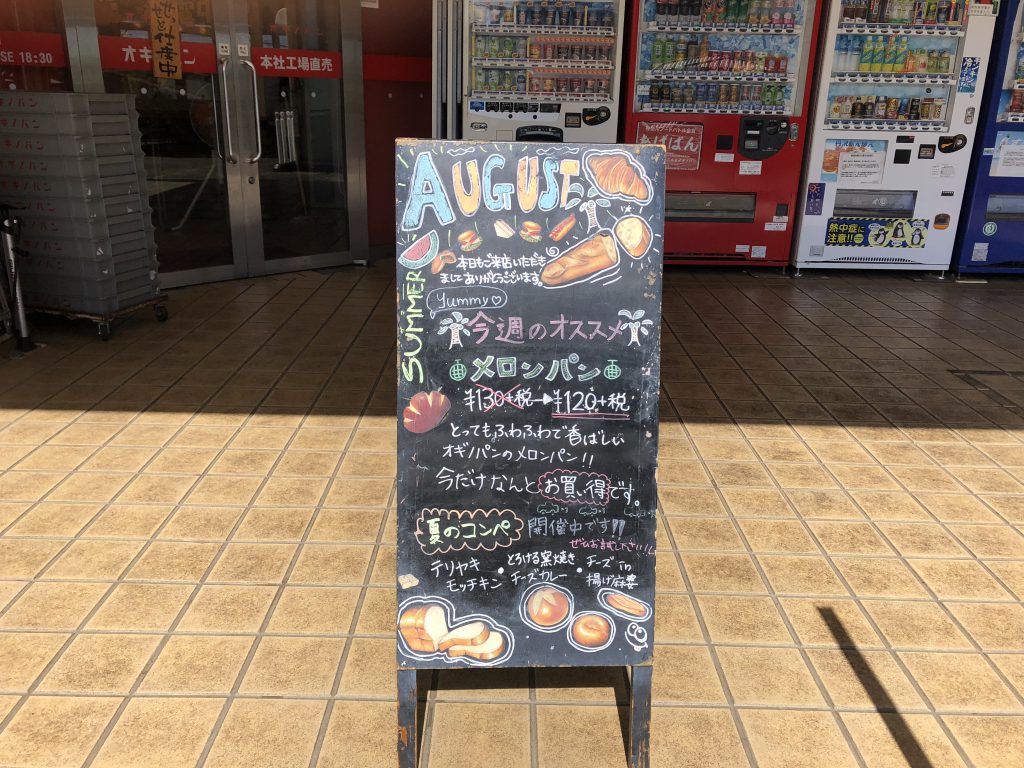 SE 18:30
せいぞう中
本社工場直売
オギノパン
あばばん
熱中症に
注意!!
AUGUST
SUMMER
本日もご来店いただき
ましてありがとうございます。
Yummy♡
今週のオススメ
メロンパン
¥130+税→¥120+税
とってもふわふわで香ばしい
オギノパンのメロンパン!!
今だけなんとお買い得です。
夏のコンペ 開催中です!!
ぜひお試し下さい!!
テリヤキ
モッチキン
・
とろける窯焼き
チーズカレー
・
チーズin
揚げ麻婆